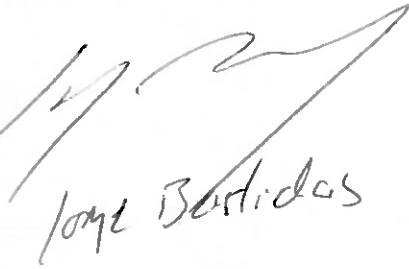 Jorge Bastidas